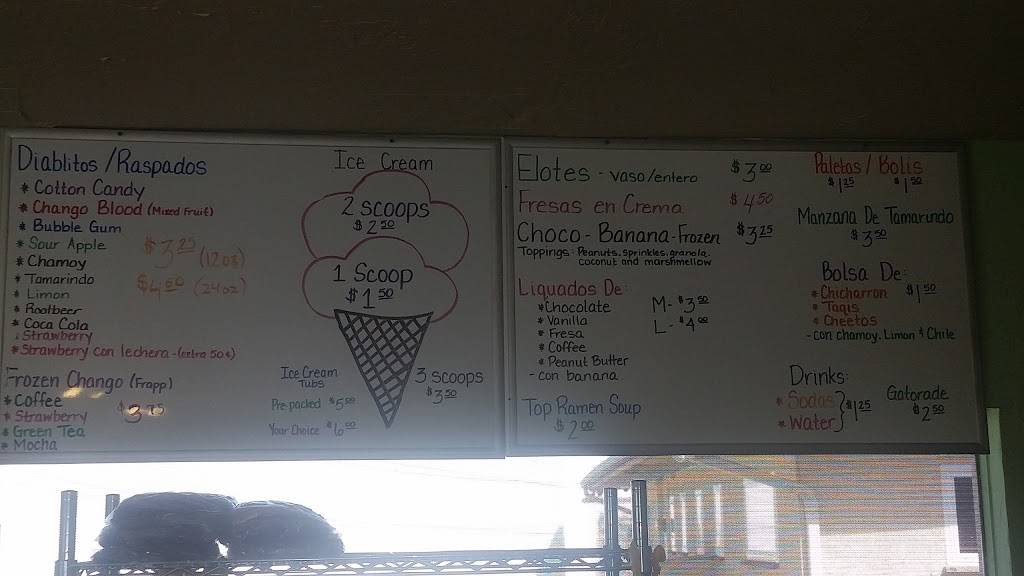 Diablitos / Raspados
* Cotton Candy
* Chango Blood (Mixed Fruit)
* Bubble Gum
* Sour Apple
* Chamoy
* Tamarindo
* Limon
* Rootbeer
* Coca Cola
* Strawberry
* Strawberry con lechera - (extra 50¢)
$3.25 (12oz)
$4.00 (24oz)
Frozen Chango (Frapp)
* Coffee
* Strawberry
* Green Tea
* Mocha
Ice Cream
2 scoops
$2.50
1 Scoop
$1.50
3 scoops
$3.50
Ice Cream
Tubs
Pre-packed $5.00
Your Choice $6.00
Elotes - vaso/entero $3.00
Fresas en Crema $4.50
Choco-Banana-Frozen $3.25
Toppings: Peanuts, sprinkles, granola,
coconut and marshmellow
Liquados De:
* Chocolate
* Vanilla
* Fresa
* Coffee
* Peanut Butter
- con banana
M- $3.50
L- $4.00
Top Ramen Soup
$2.00
Paletas / Bolis
$1.25 $1.50
Manzana De Tamarindo
$3.50
Bolsa De:
* Chicharron
* Taqis
* Cheetos
$1.50
- con chamoy, Limon & Chile
Drinks:
* Sodas
* Water
$1.25
Gatorade
$2.50